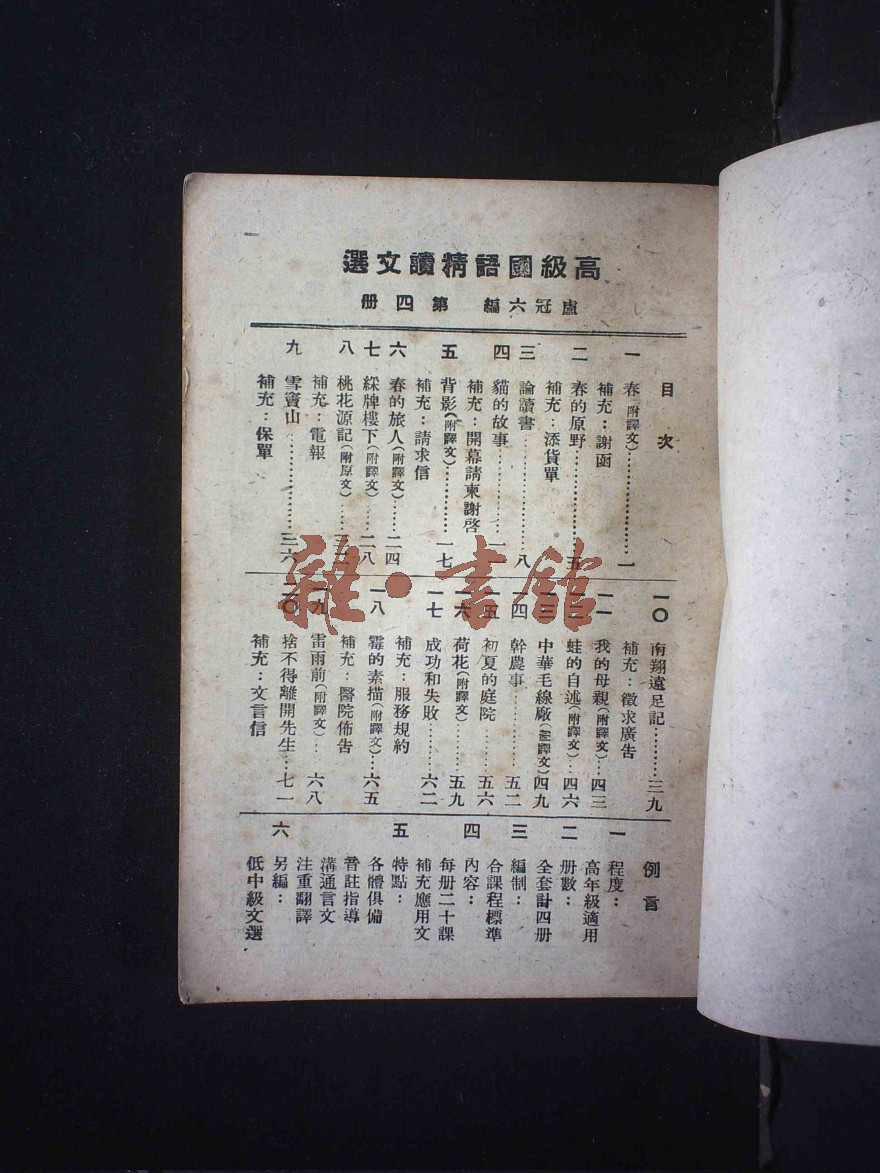 高級國語精讀文選
盧冠六編 第四册
目次
一 春(附譯文)…………一
補充：謝函
二 春的原野…………五
補充：添貨單
三 論讀書…………八
四 貓的故事…………一一
補充：開幕請柬謝啓
五 背影(附譯文)……一七
補充：請求信
六 春的旅人(附譯文)……二四
七 綵牌樓下(附譯文)……二八
八 桃花源記(附原文)……三二
補充：電報
九 雪竇山…………三六
補充：保單
一〇 南翔遠足記…………三九
補充：徵求廣告
一一 我的母親(附譯文)…四三
一二 蛙的自述(附譯文)…四六
一三 中華毛線廠(註譯文)四九
一四 幹農事…………五二
一五 初夏的庭院……五六
一六 荷花(附譯文)……五九
一七 成功和失敗………六二
補充：服務規約
一八 霉的素描(附譯文)…六五
補充：醫院佈告
一九 雷雨前(附譯文)…六八
二〇 捨不得離開先生…七一
補充：文言信
例言
一 程度：
高年級適用
二 册數：
全套計四册
三 編制：
合課程標準
四 內容：
每册二十課
補充應用文
五 特點：
各體俱備
音註指導
溝通言文
注重翻譯
六 另編：
低中級文選
雜·書館